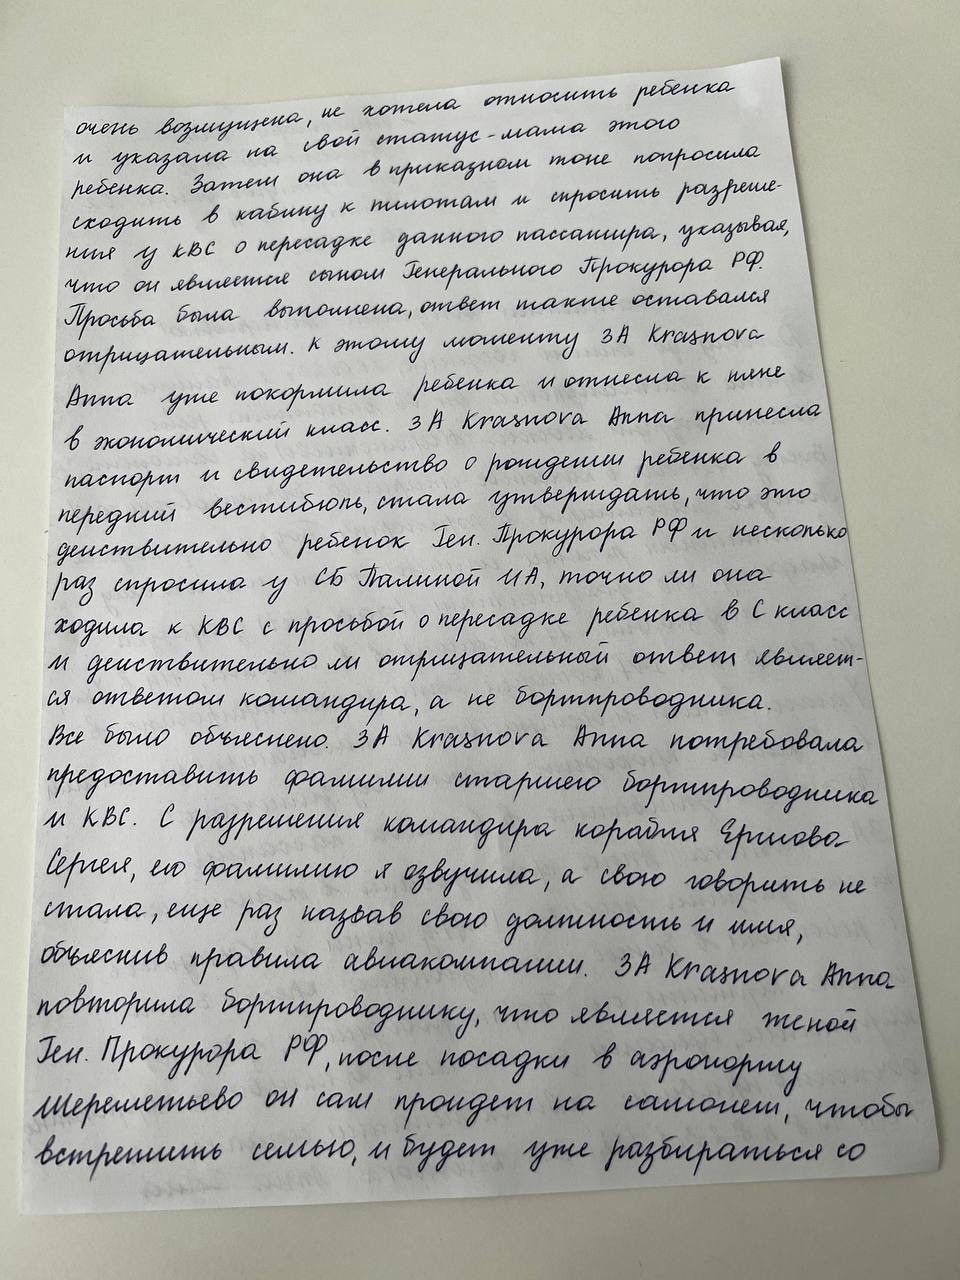 очень возмущена, не хотела относить ребенка
и указала на свой статус - мама этого
ребенка. Затем она в приказном тоне попросила
сходить в кабину к пилотам и спросить разреше-
ния у КВС о пересадке данного пассажира, указывая,
что он является сыном Генерального Прокурора РФ.
Просьба была выполнена, ответ также оставался
отрицательным. К этому моменту 3А Krasnova
Anna уже покормила ребенка и отнесла к няне
в экономический класс. 3А Krasnova Anna принесла
паспорт и свидетельство о рождении ребенка в
передний вестибюль, стала утверждать, что это
действительно ребенок Ген. Прокурора РФ и несколько
раз спросила у СБ Палиной ИА, точно ли она
ходила к КВС с просьбой о пересадке ребенка в С класс
и действительно ли отрицательный ответ являет-
ся ответом командира, а не бортпроводника.
Все было объяснено. 3А Krasnova Anna потребовала
предоставить фамилии старшего бортпроводника
и КВС. С разрешения командира корабля Ершова
Сергея, его фамилию я озвучила, а свою говорить не
стала, еще раз назвав свою должность и имя,
объяснив правила авиакомпании. 3А Krasnova Anna
повторила бортпроводнику, что является женой
Ген. Прокурора РФ, после посадки в аэропорту
Шереметьево он сам пройдет на самолет, чтобы
встретить семью, и будет уже разбираться со